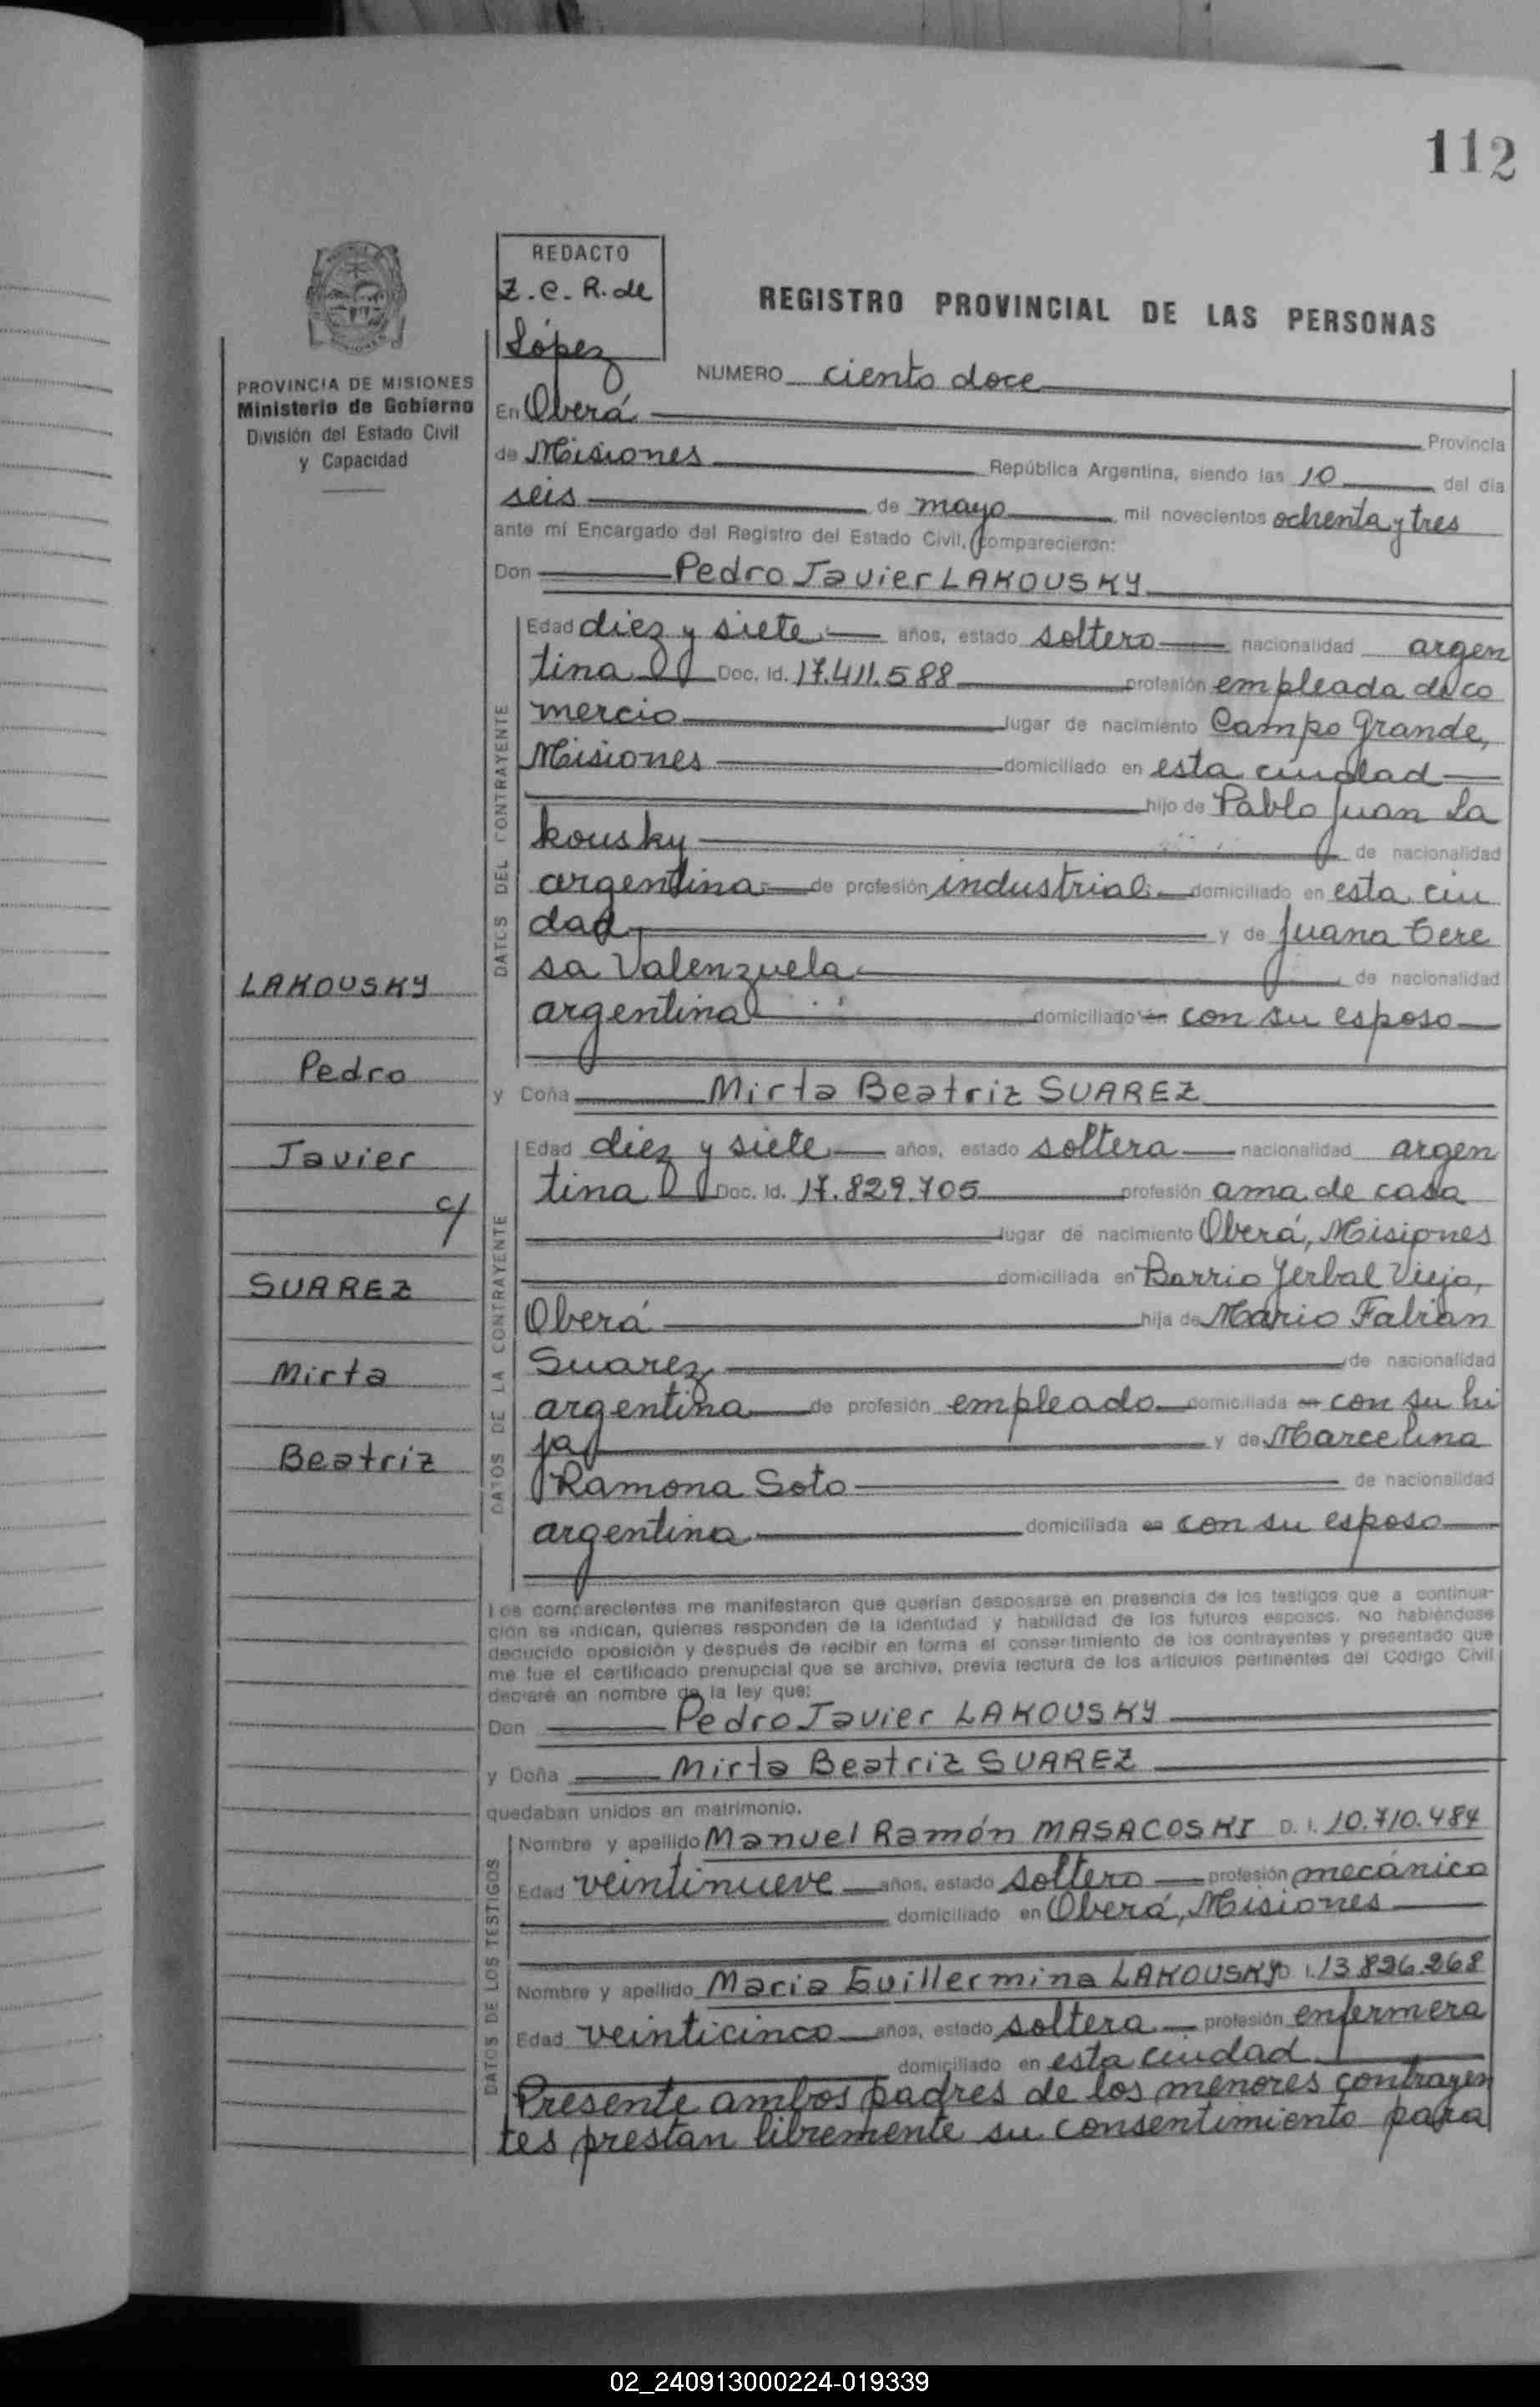 112
REDACTO
Z.C.R. de
López
REGISTRO PROVINCIAL DE LAS PERSONAS
PROVINCIA DE MISIONES
Ministerio de Gobierno
División del Estado Civil
y Capacidad
NUMERO ciento doce
En Oberá Provincia
de Misiones República Argentina, siendo las 10 del día
seis de mayo mil novecientos ochenta y tres
ante mí Encargado del Registro del Estado Civil, comparecieron:
Don Pedro Javier LAKOUSKY
DATOS DEL CONTRAYENTE
Edad diez y siete años, estado soltero nacionalidad argen
tina Doc. Id. 17.411.588 profesión empleada de co
mercio lugar de nacimiento Campo Grande,
Misiones domiciliado en esta ciudad
hijo de Pablo Juan La
kousky de nacionalidad
argentina de profesión industrial domiciliado en esta ciu
dad y de Juana Tere
sa Valenzuela de nacionalidad
argentina domiciliado en con su esposo
LAKOUSKY
Pedro
Javier
c/
SUAREZ
Mirta
Beatriz
y Doña Mirta Beatriz SUAREZ
DATOS DE LA CONTRAYENTE
Edad diez y siete años, estado soltera nacionalidad argen
tina Doc. Id. 17.829.705 profesión ama de casa
lugar de nacimiento Oberá, Misiones
domiciliada en Barrio Yerbal Viejo,
Oberá hija de Mario Fabian
Suarez de nacionalidad
argentina de profesión empleado domiciliada en con su hi
ja y de Marcelina
Ramona Soto de nacionalidad
argentina domiciliada en con su esposo
Los comparecientes me manifestaron que querían desposarse en presencia de los testigos que a continua-
ción se indican, quienes responden de la identidad y habilidad de los futuros esposos. No habiéndose
deducido oposición y después de recibir en forma el consentimiento de los contrayentes y presentado que
me fue el certificado prenupcial que se archiva, previa lectura de los artículos pertinentes del Código Civil
declaré en nombre de la ley que:
Don Pedro Javier LAKOUSKY
y Doña Mirta Beatriz SUAREZ
quedaban unidos en matrimonio.
DATOS DE LOS TESTIGOS
Nombre y apellido Manuel Ramón MASACOSKI D. I. 10.710.484
Edad veintinueve años, estado soltero profesión mecánico
domiciliado en Oberá, Misiones
Nombre y apellido Maria Guillermina LAKOUSKY D I. 13.826.268
Edad veinticinco años, estado soltera profesión enfermera
domiciliado en esta ciudad
Presente ambos padres de los menores contrayen
tes prestan libremente su consentimiento para
02_240913000224-019339